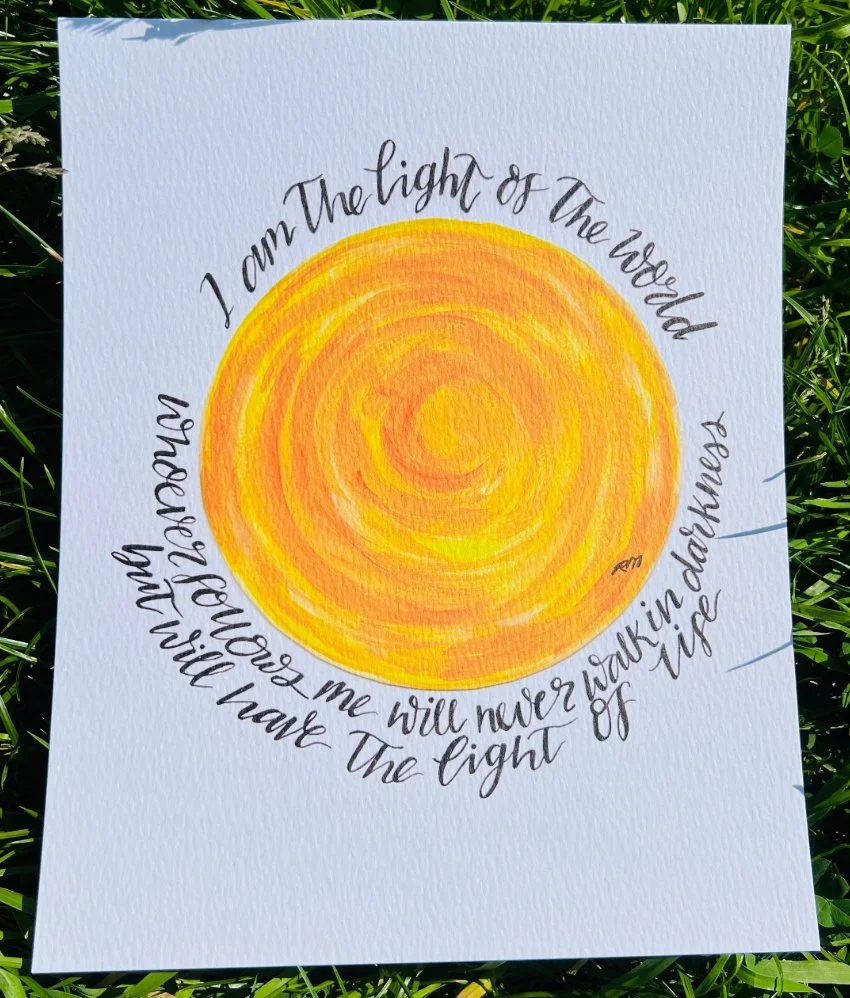 I am The light of The World
whoever follows me will never walk in darkness
but will have The light of life